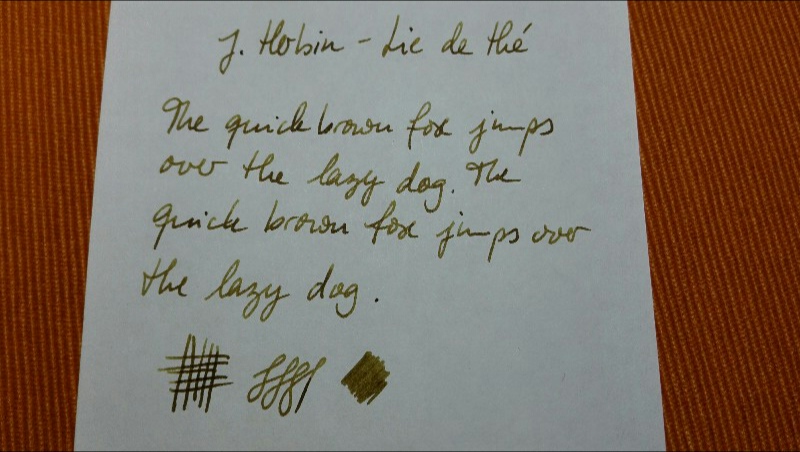 J. Herbin - Lie de thé
The quick brown fox jumps
over the lazy dog. The
quick brown fox jumps over
the lazy dog.